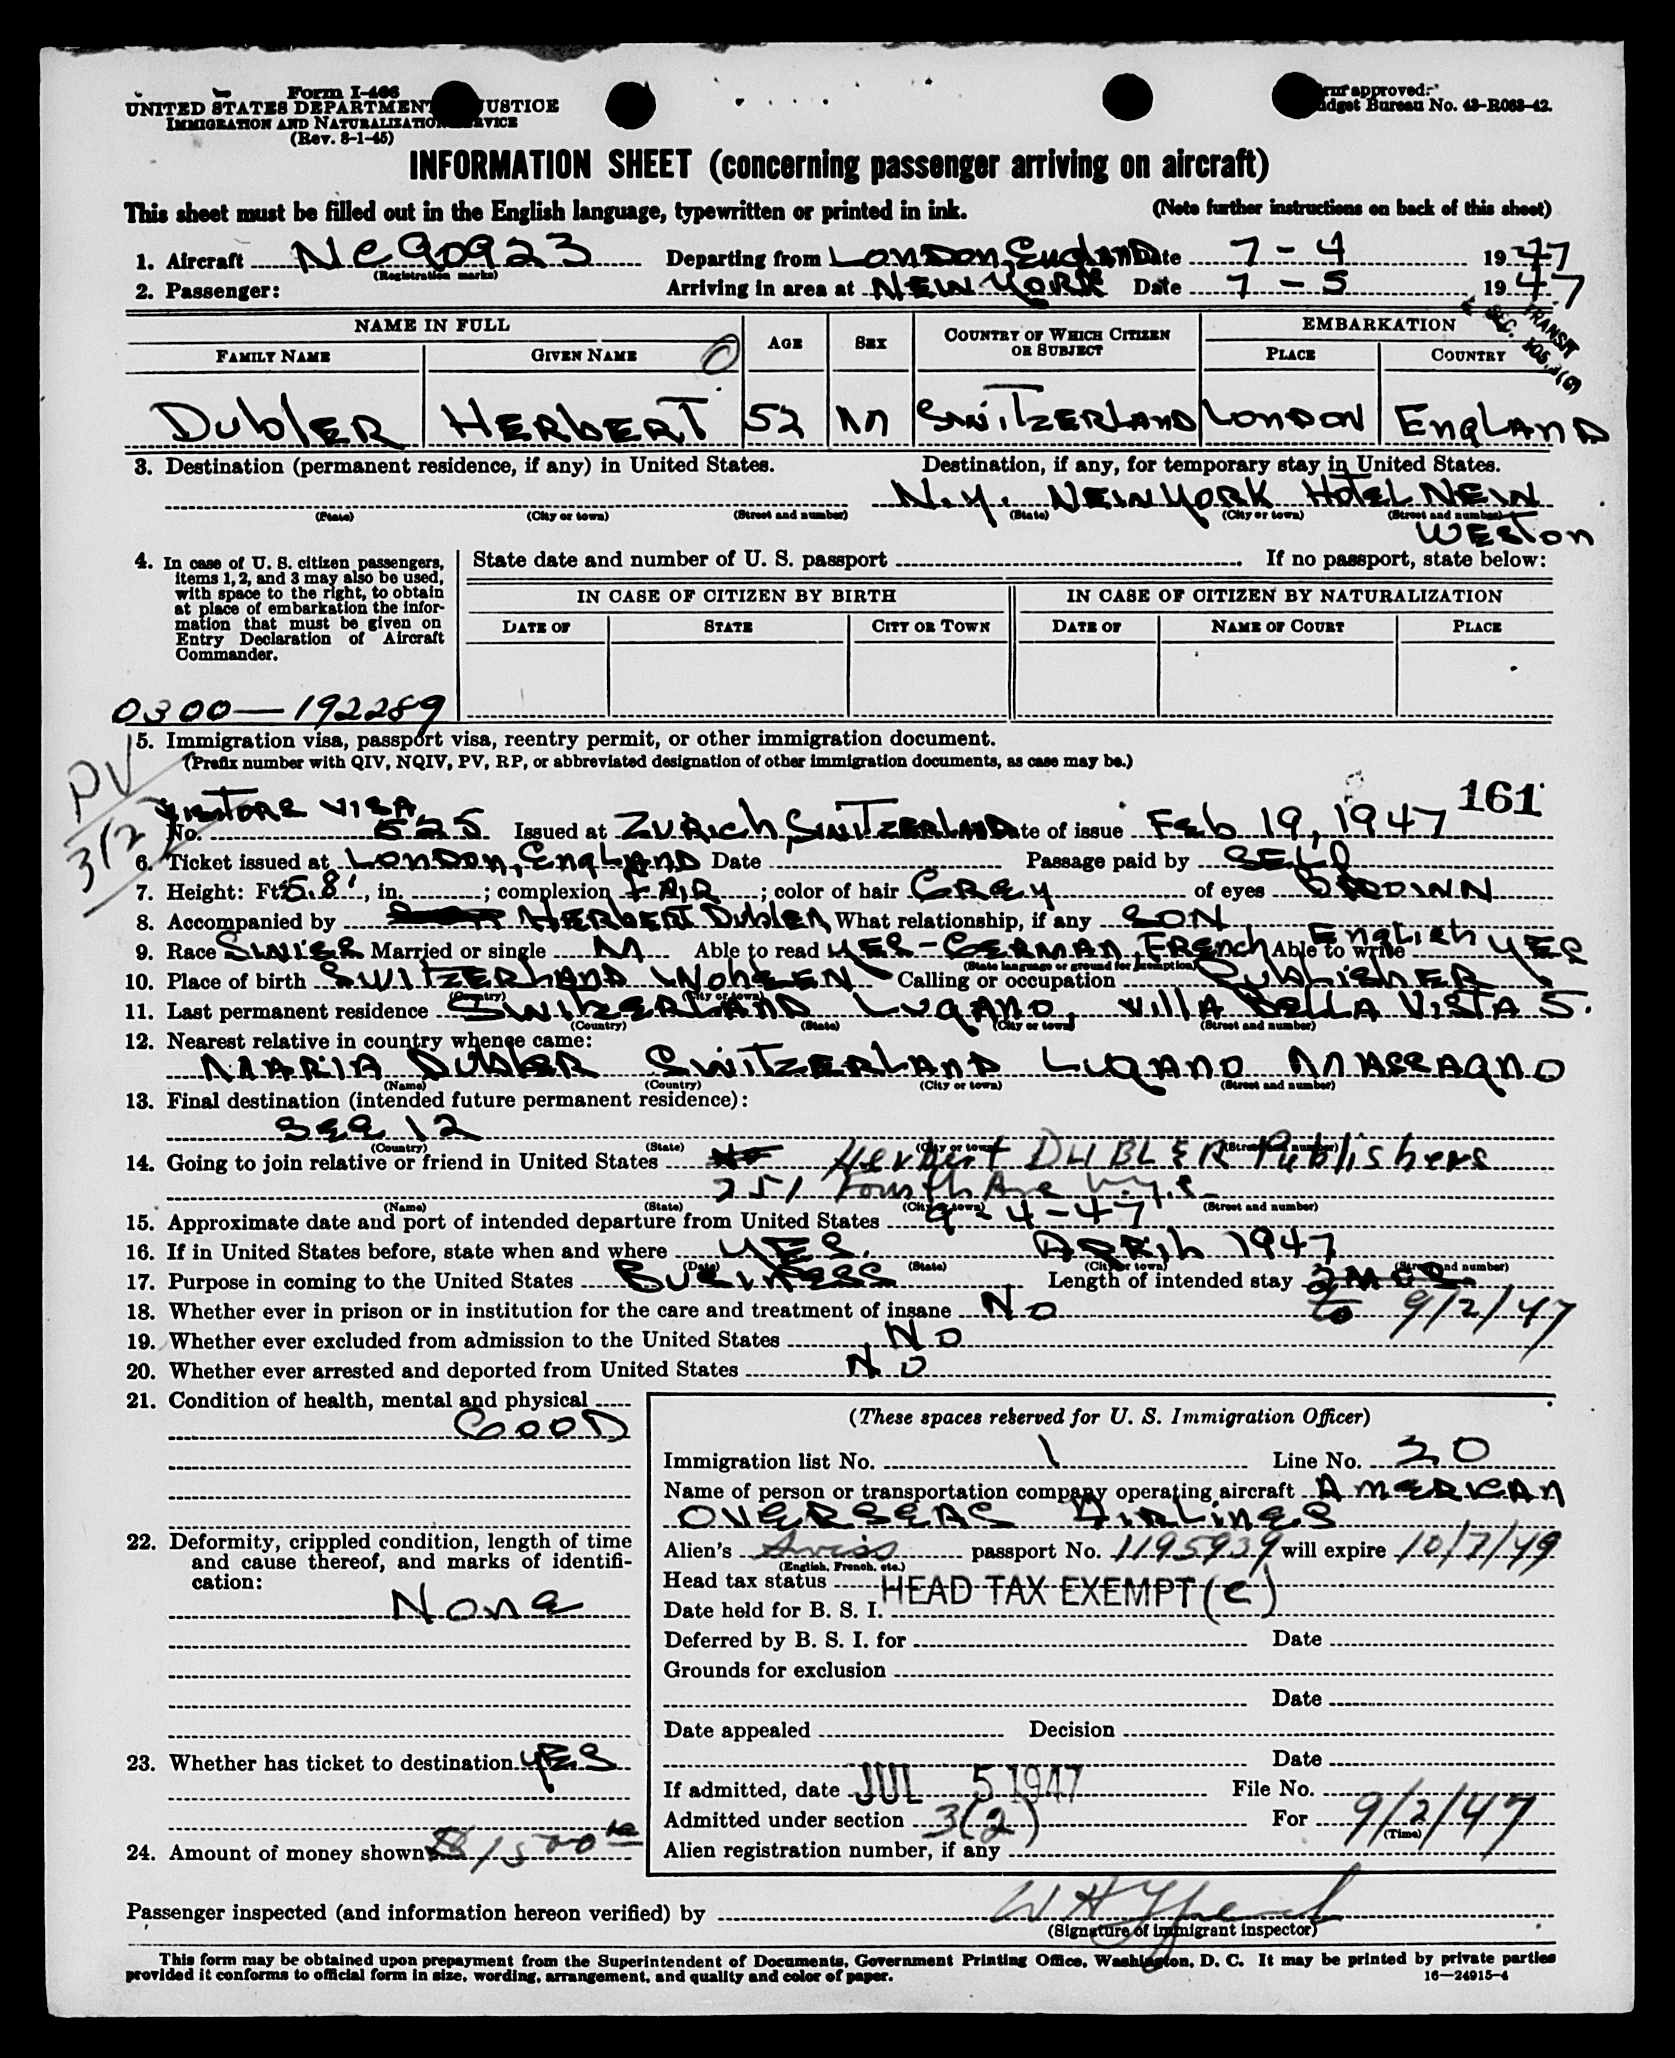 Form I-466
UNITED STATES DEPARTMENT JUSTICE
IMMIGRATION AND NATURALIZATION SERVICE
(Rev. 8-1-45)
approved:
Budget Bureau No. 43-R063-42.
INFORMATION SHEET (concerning passenger arriving on aircraft)
This sheet must be filled out in the English language, typewritten or printed in ink. (Note further instructions on back of this sheet)
1. Aircraft NC90923 Departing from LONDON, ENGLAND Date 7-4 1947
(Registration marks)
2. Passenger: Arriving in area at NEW YORK Date 7-5 1947
TRANSIT
SEC.
NAME IN FULL AGE SEX COUNTRY OF WHICH CITIZEN OR SUBJECT EMBARKATION
FAMILY NAME GIVEN NAME PLACE COUNTRY
DUBLER HERBERT 52 M SWITZERLAND LONDON ENGLAND
3. Destination (permanent residence, if any) in United States. Destination, if any, for temporary stay in United States.
N.Y. NEW YORK HOTEL NEW
(State) (City or town) (Street and number) (State) (City or town) (Street and number)
WESTON
4. In case of U. S. citizen passengers, items 1, 2, and 3 may also be used, with space to the right, to obtain at place of embarkation the information that must be given on Entry Declaration of Aircraft Commander.
State date and number of U. S. passport If no passport, state below:
IN CASE OF CITIZEN BY BIRTH IN CASE OF CITIZEN BY NATURALIZATION
DATE OF STATE CITY OR TOWN DATE OF NAME OF COURT PLACE
0300-192289
5. Immigration visa, passport visa, reentry permit, or other immigration document.
(Prefix number with QIV, NQIV, PV, RP, or abbreviated designation of other immigration documents, as case may be.)
PV
3(2)
161
VISITORS VISA
No. 525 Issued at ZURICH, SWITZERLAND Date of issue FEB 19, 1947
6. Ticket issued at LONDON, ENGLAND Date Passage paid by SELF
7. Height: Ft. 5.8', in. ; complexion FAIR ; color of hair GREY of eyes BROWN
8. Accompanied by HERBERT DUBLER, What relationship, if any SON
9. Race SWISS Married or single M Able to read YES-GERMAN, FRENCH ENGLISH Able to write YES
(State language or ground for exemption)
10. Place of birth SWITZERLAND WOHLEN Calling or occupation PUBLISHER
(Country) (City or town)
11. Last permanent residence SWITZERLAND LUGANO, VILLA BELLA VISTA 5.
(Country) (State) (City or town) (Street and number)
12. Nearest relative in country whence came:
MARIA DUBLER SWITZERLAND LUGANO MASSAGNO
(Name) (Country) (City or town) (Street and number)
13. Final destination (intended future permanent residence):
SEE 12
(Country) (State) (City or town) (Street and number)
14. Going to join relative or friend in United States Herbert DUBLER Publishers
251 Fourth Ave N.Y.C.
(Name) (State) (City or town) (Street and number)
15. Approximate date and port of intended departure from United States 9-4-47
16. If in United States before, state when and where YES. APRIL 1947
(Date) (State) (City or town) (Street and number)
17. Purpose in coming to the United States BUSINESS Length of intended stay 2 MOS
to 9/2/47
18. Whether ever in prison or in institution for the care and treatment of insane NO
19. Whether ever excluded from admission to the United States NO
20. Whether ever arrested and deported from United States NO
21. Condition of health, mental and physical
GOOD
22. Deformity, crippled condition, length of time and cause thereof, and marks of identification:
None
23. Whether has ticket to destination YES
24. Amount of money shown $1500
(These spaces reserved for U. S. Immigration Officer)
Immigration list No. 1 Line No. 20
Name of person or transportation company operating aircraft AMERICAN
OVERSEAS AIRLINES
Alien's Swiss passport No. 1195939 will expire 10/7/49
(English, French, etc.)
Head tax status HEAD TAX EXEMPT (c)
Date held for B. S. I.
Deferred by B. S. I. for Date
Grounds for exclusion
Date
Date appealed Decision
Date
If admitted, date JUL 5 1947 File No.
Admitted under section 3(2) For 9/2/47
(Time)
Alien registration number, if any
Passenger inspected (and information hereon verified) by
(Signature of immigrant inspector)
This form may be obtained upon prepayment from the Superintendent of Documents, Government Printing Office, Washington, D. C. It may be printed by private parties
provided it conforms to official form in size, wording, arrangement, and quality and color of paper. 16—24915-4